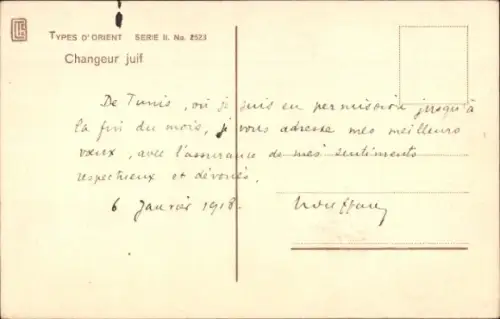 TYPES D'ORIENT SERIE II. No. 2523
Changeur juif
De Tunis, où je suis en permission jusqu'à
la fin du mois, je vous adresse mes meilleurs
vœux, avec l'assurance de mes sentiments
respectueux et dévoués.
6 Janvier 1918.